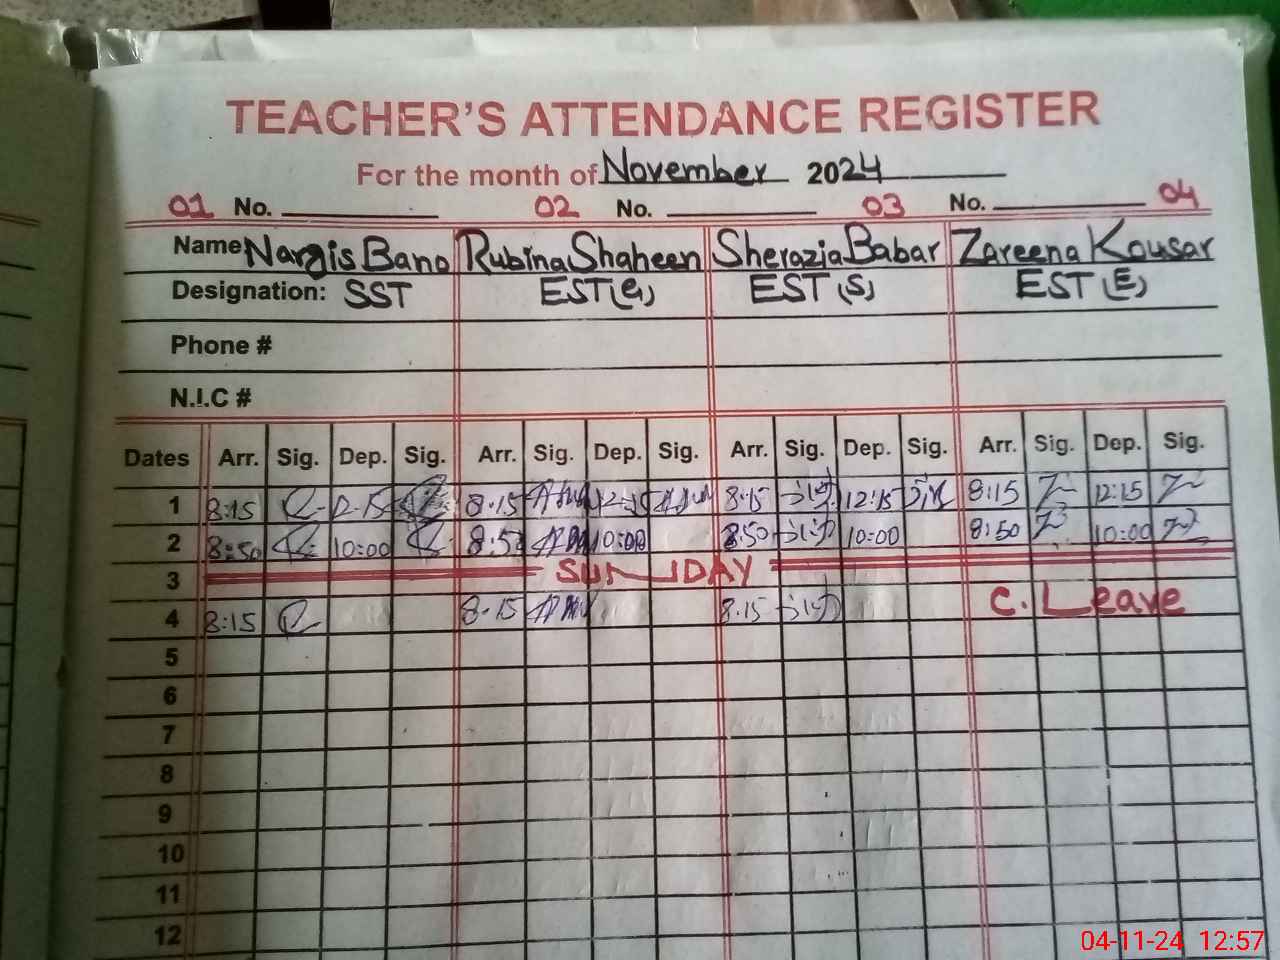 TEACHER'S ATTENDANCE REGISTER
For the month of November 2024
01 No. 02 No. 03 No. 04
Name Nargis Bano Rubina Shaheen Sherazia Babar Zareena Kousar
Designation: SST EST(G) EST (S) EST (E)
Phone #
N.I.C #
Dates Arr. Sig. Dep. Sig. Arr. Sig. Dep. Sig. Arr. Sig. Dep. Sig. Arr. Sig. Dep. Sig.
1 8:15 12:15 8:15 12:15 8:15 12:15 8:15 12:15
2 8:50 10:00 8:50 10:00 8:50 10:00 8:50 10:00
3 SUNDAY
4 8:15 8:15 8:15 C. Leave
5
6
7
8
9
10
11
12
04-11-24 12:57